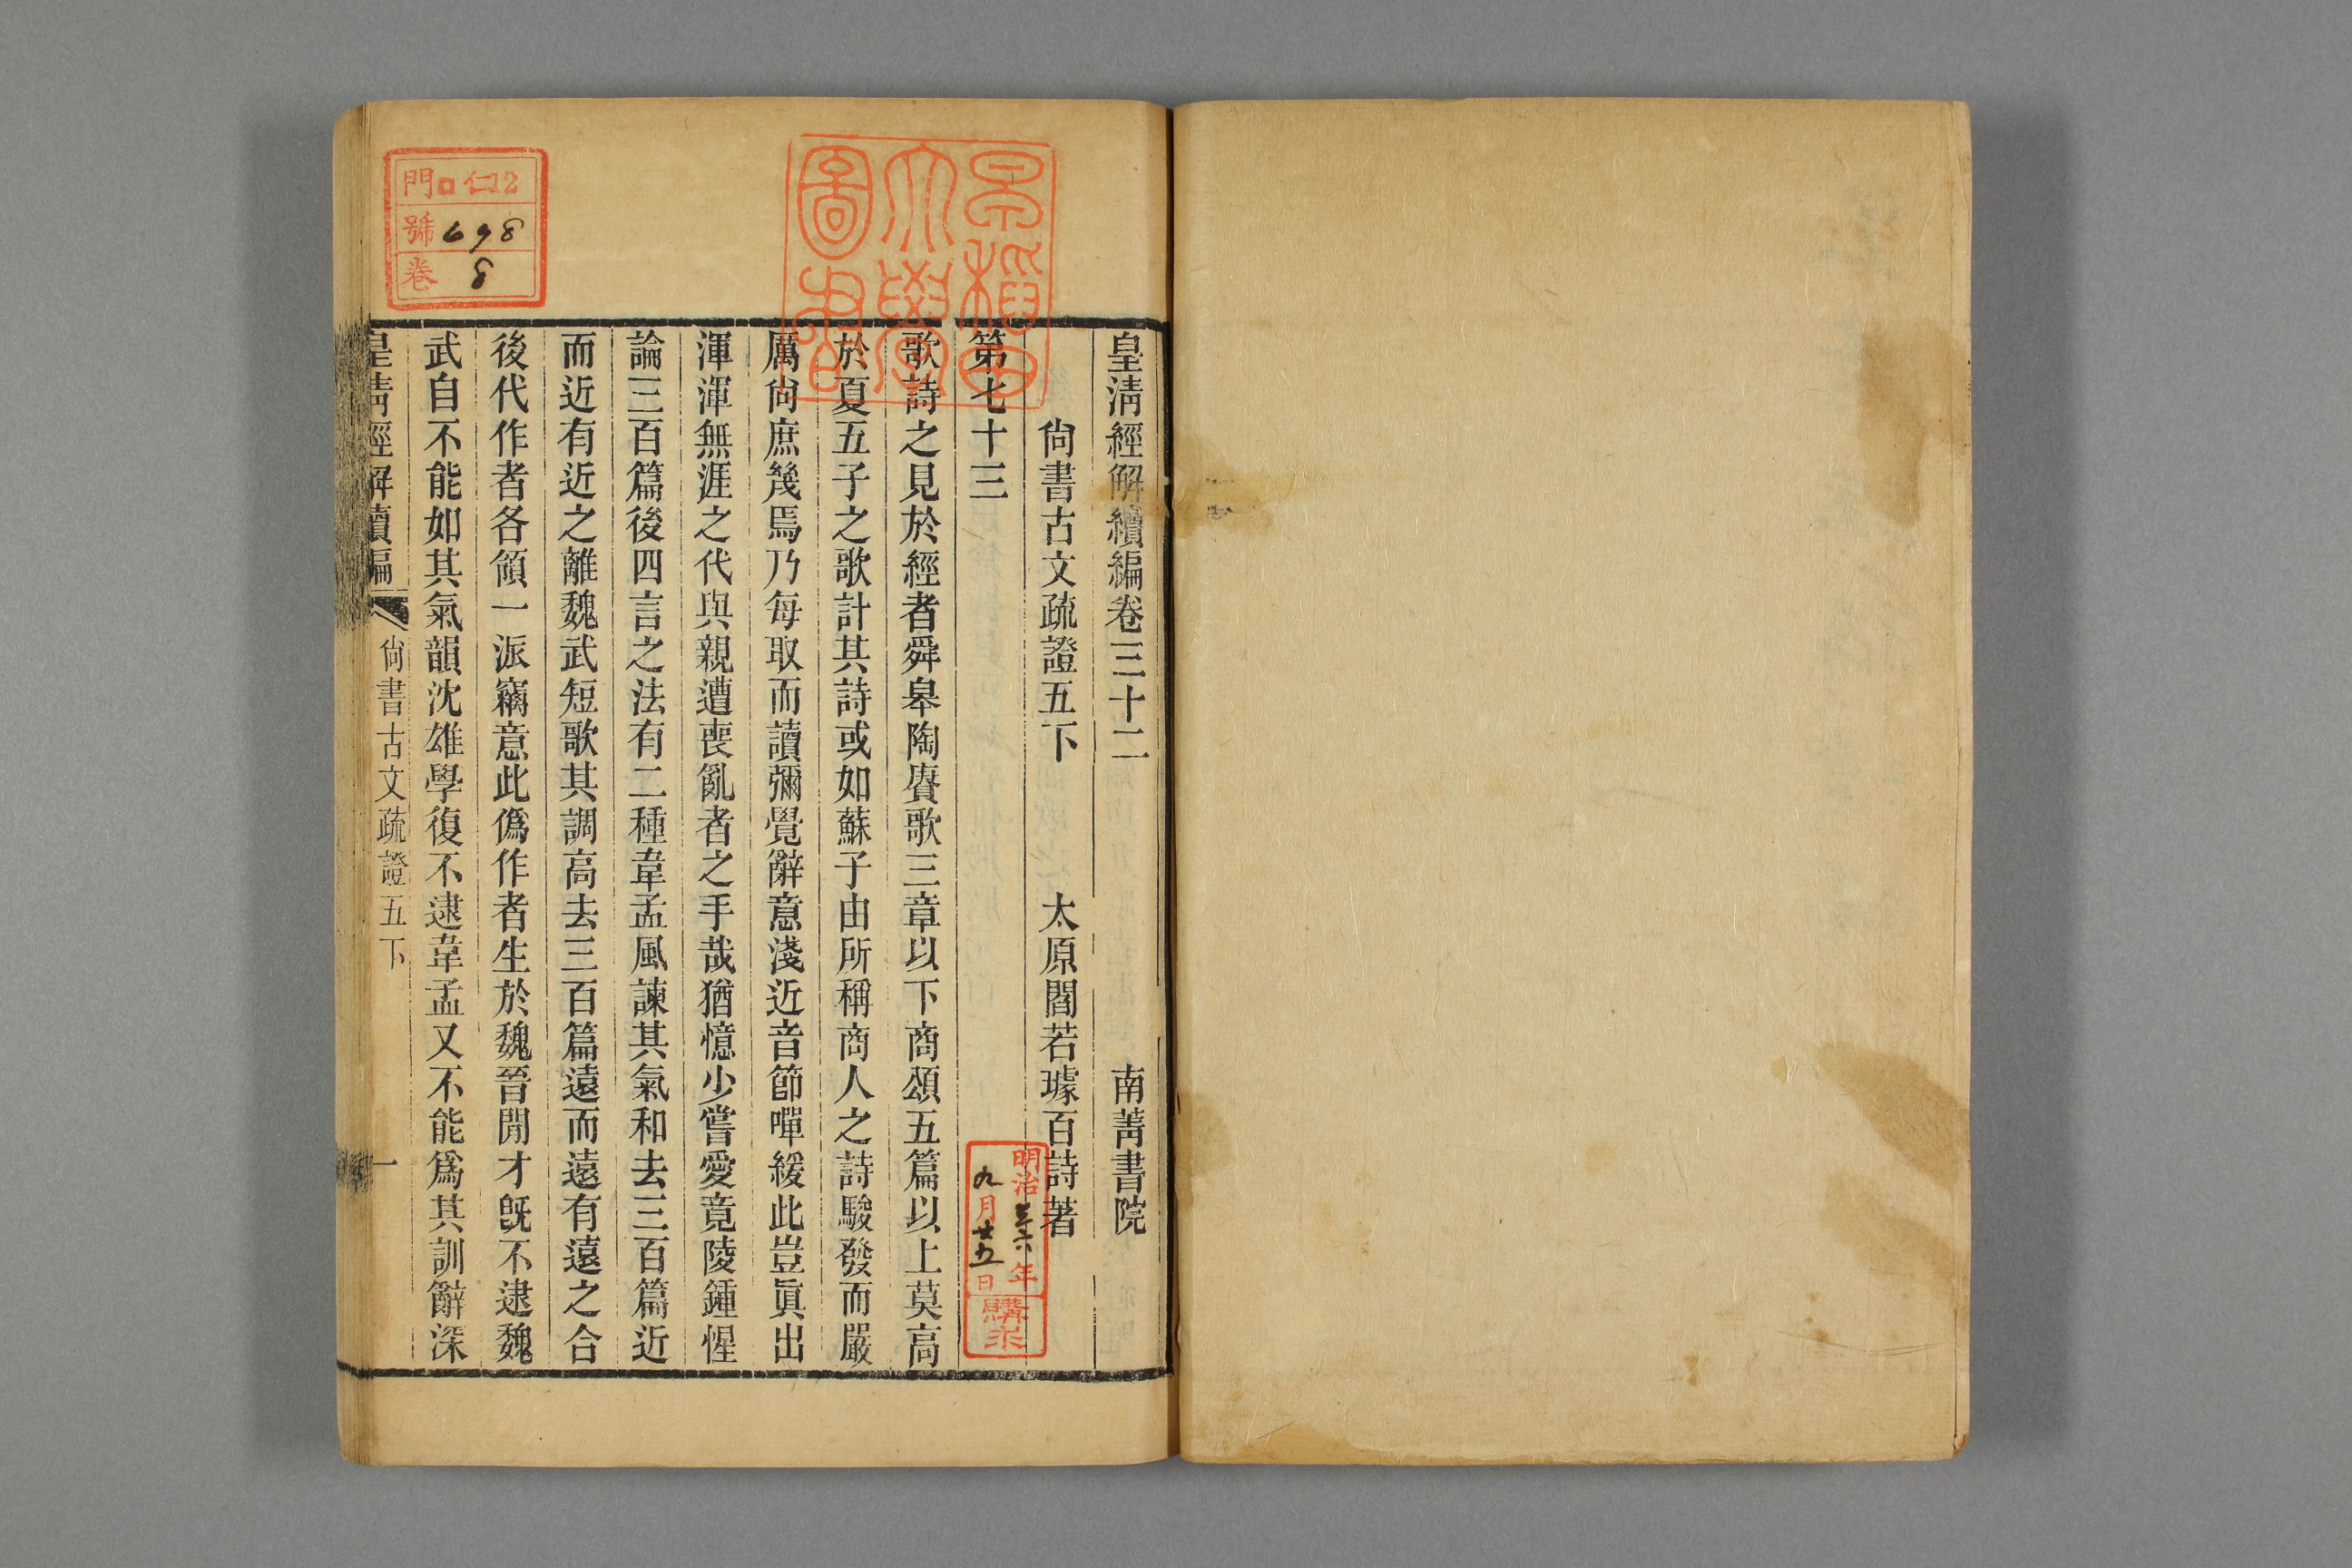 皇淸經解續編卷三十二
南菁書院
尙書古文疏證五下
太原閻若璩百詩著
第七十三
歌詩之見於經者舜皋陶賡歌三章以下商頌五篇以上莫高
於夏五子之歌計其詩或如蘇子由所稱商人之詩駿發而嚴
厲尙庶幾焉乃每取而讀彌覺辭意淺近音節嘽緩此豈眞出
渾渾無涯之代與親遭喪亂者之手哉猶憶少嘗愛竟陵鍾惺
論三百篇後四言之法有二種韋孟風諫其氣和去三百篇近
而近有近之離魏武短歌其調高去三百篇遠而遠有遠之合
後代作者各領一派竊意此僞作者生於魏晉閒才旣不逮魏
武自不能如其氣韻沈雄學復不逮韋孟又不能爲其訓辭深
皇淸經解續編
尙書古文疏證五下
一
早稻田
大學
圖書
門ロ仁12
號698
卷8
明治
年
九月廿五日
購求